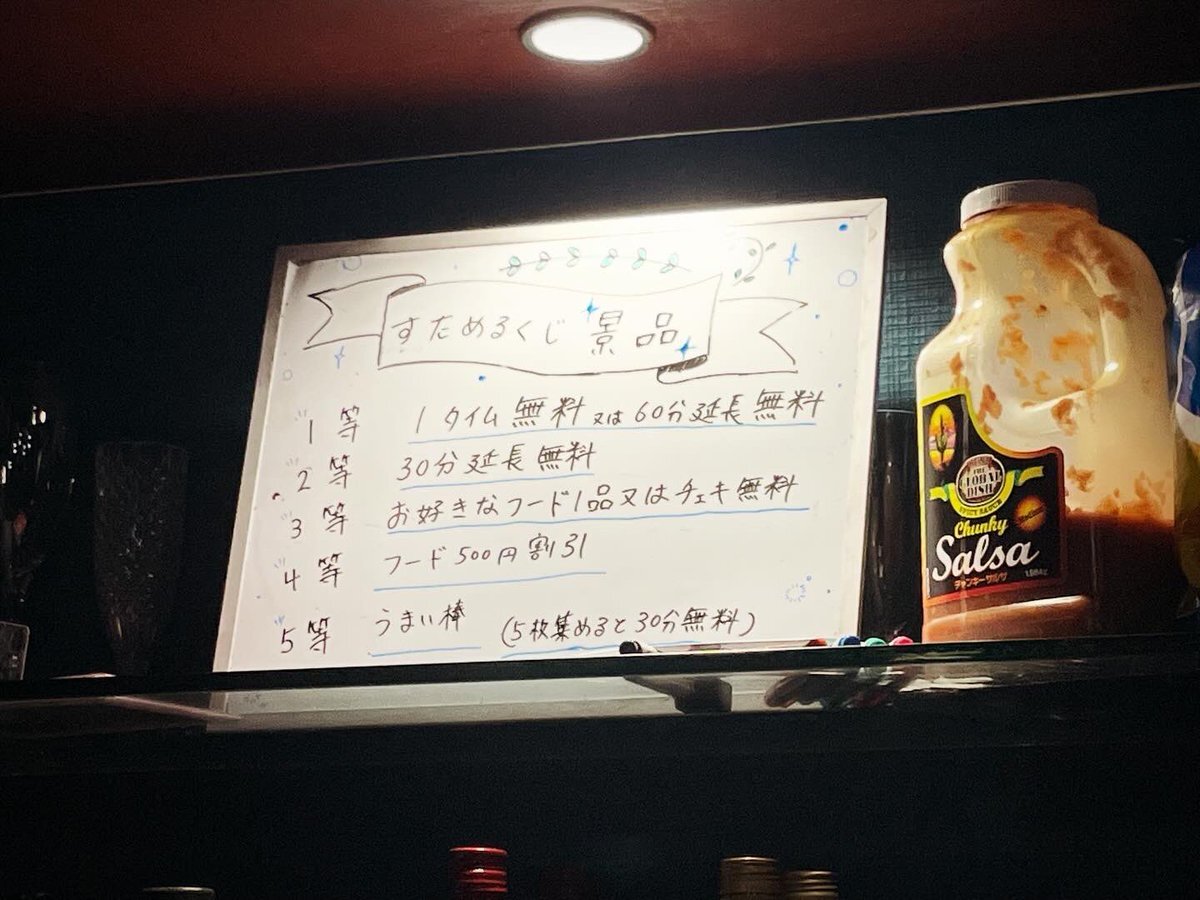 すためるくじ 景品
1等 1タイム無料又は60分延長無料
2等 30分延長無料
3等 お好きなフード1品又はチェキ無料
4等 フード500円割引
5等 うまい棒 (5枚集めると30分無料)
THE
GLOBAL
DISH
SPICY SAUCE
Chunky
Salsa
チャンキーサルサ